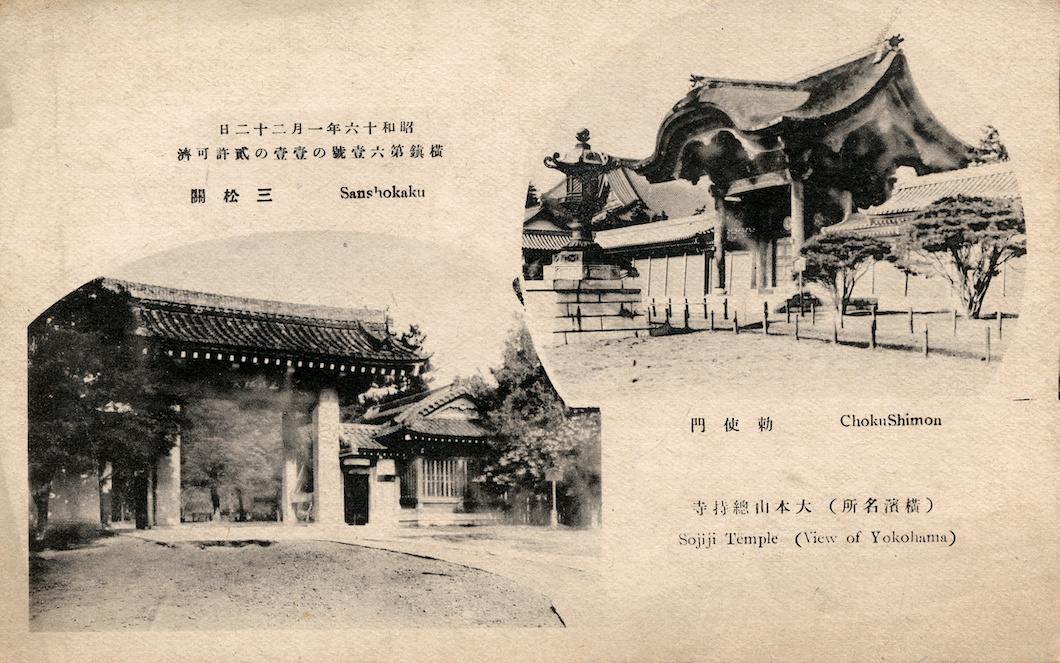 昭和十六年一月二十二日
橫鎮第六壹號の壹壹の貳許可濟
三松關 Sanshokaku
勅使門 ChokuShimon
（橫濱名所）大本山總持寺
Sojiji Temple (View of Yokohama)